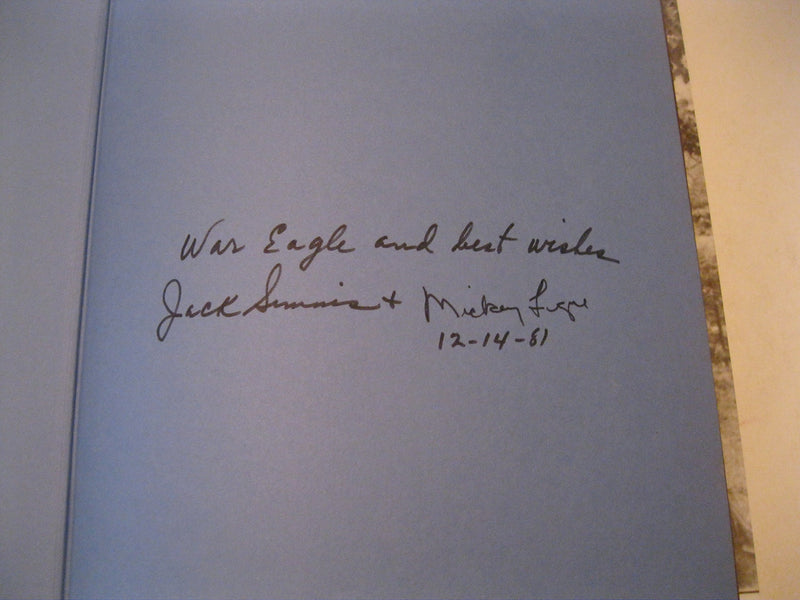 War Eagle and best wishes
Jack Simms + Mickey Logue
12-14-81